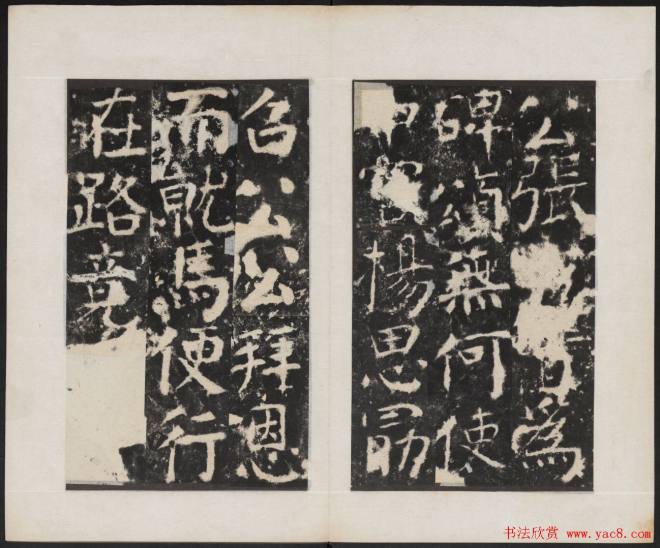 公張為
碑頌無何使
中官楊思勗
召公公拜恩
而就馬便行
在路竟
书法欣赏 www.yac8.com